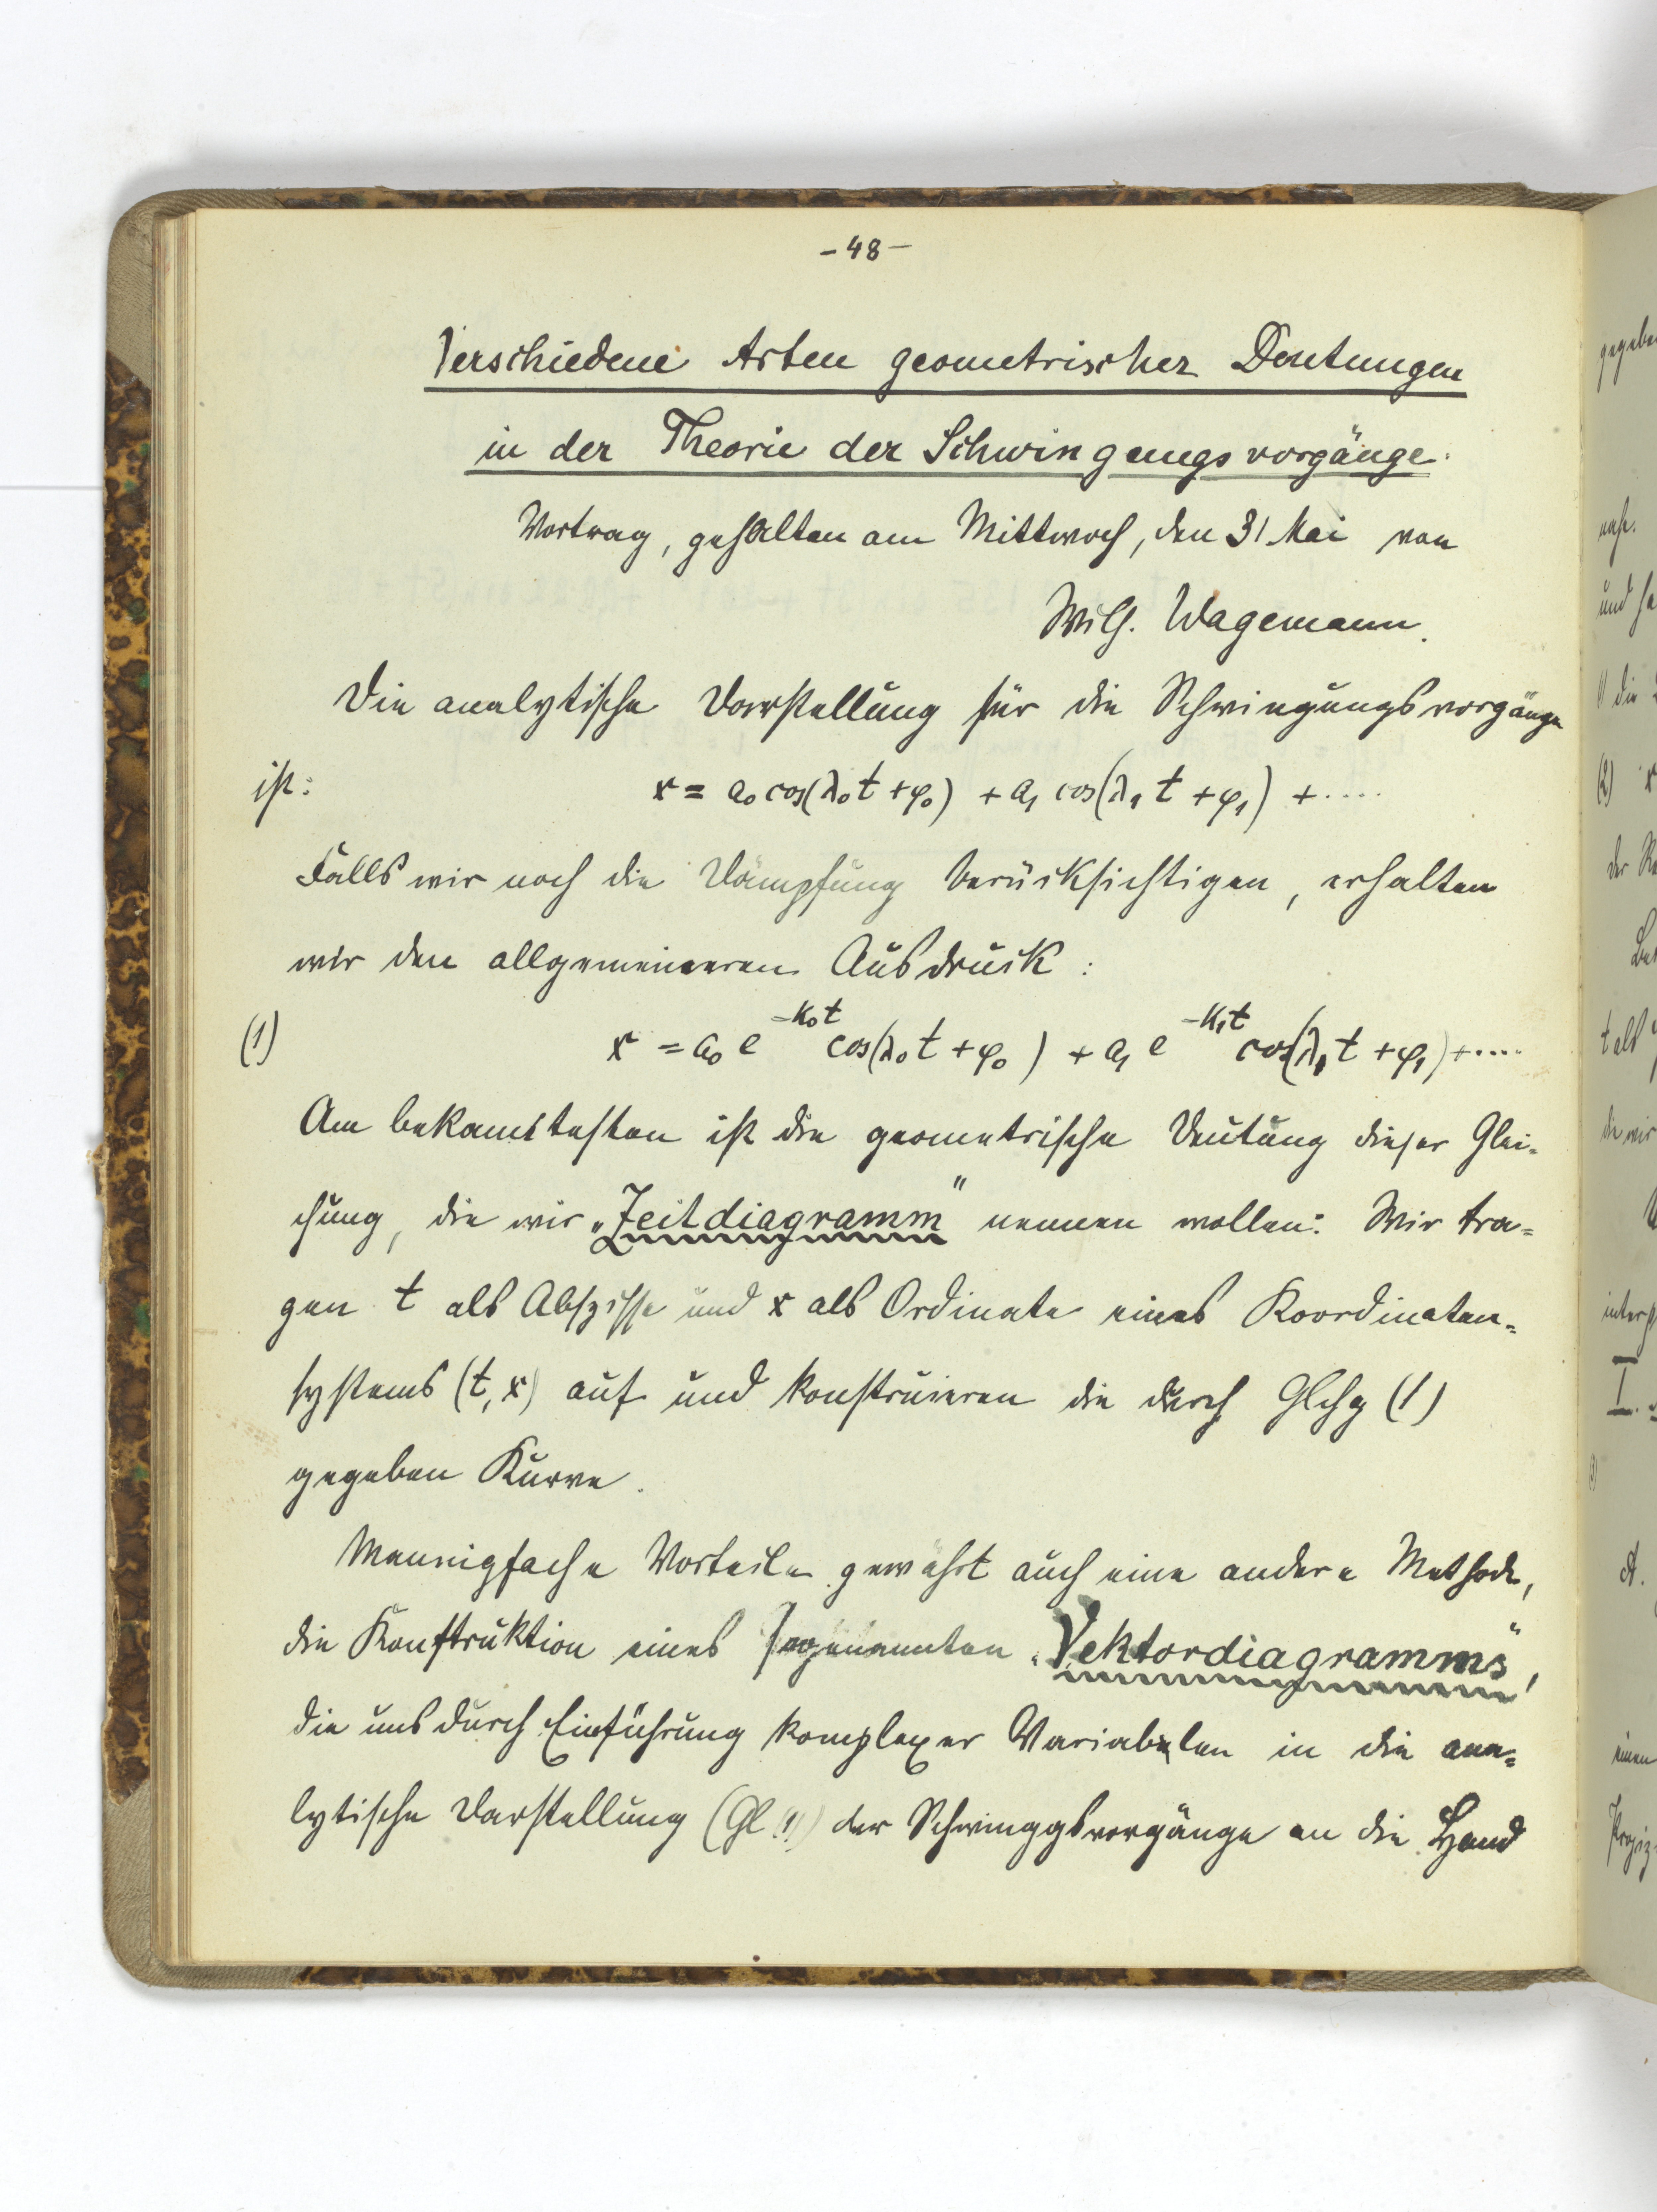 - 48 -
Verschiedene Arten geometrischer Deutungen
in der Theorie der Schwingungsvorgänge.
Vortrag, gehalten am Mittwoch, den 31 Mai von
Wilh. Wagemann.
Die analytische Darstellung für die Schwingungsvorgänge
ist: x = a₀ cos(λ₀t + φ₀) + a₁ cos(λ₁t + φ₁) + ....
Falls wir noch die Dämpfung berücksichtigen, erhalten
wir den allgemeineren Ausdruck:
(1) x = a₀ e^{-κ₀t} cos(λ₀t + φ₀) + a₁ e^{-κ₁t} cos(λ₁t + φ₁) + ....
Am bekanntesten ist die geometrische Deutung dieser Glei-
chung, die wir „Zeitdiagramm" nennen wollen: Wir tra-
gen t als Abszisse und x als Ordinate eines Koordinaten-
systems (t, x) auf und konstruieren die durch Glchg (1)
gegeben Kurve.
Mannigfache Vorteile gewährt auch eine andere Methode,
die Konstruktion eines sogenannten „Vektordiagramms",
die uns durch Einführung komplexer Variabelen in die ana-
lytische Darstellung (Gl (1)) der Schwinggsvorgänge an die Hand